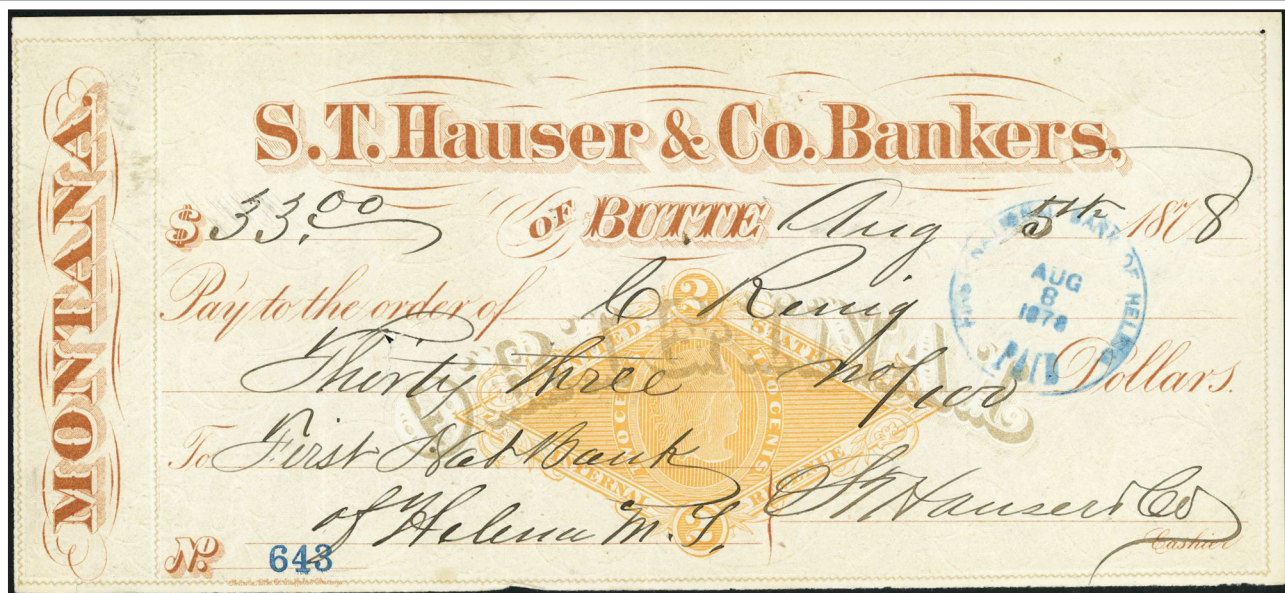 MONTANA.
S.T. Hauser & Co. Bankers,
$ 33.00 OF BUTTE Aug 5th 1878
Pay to the order of C
Thirty three no/100 Dollars.
To First Nat Bank
of Helena M.T.
S T Hauser & Co
Cashier
No. 643
NATIONAL BANK OF HELENA
AUG
8
1878
PAID
2
UNITED STATES
TWO CENTS
INTERNAL REVENUE
2